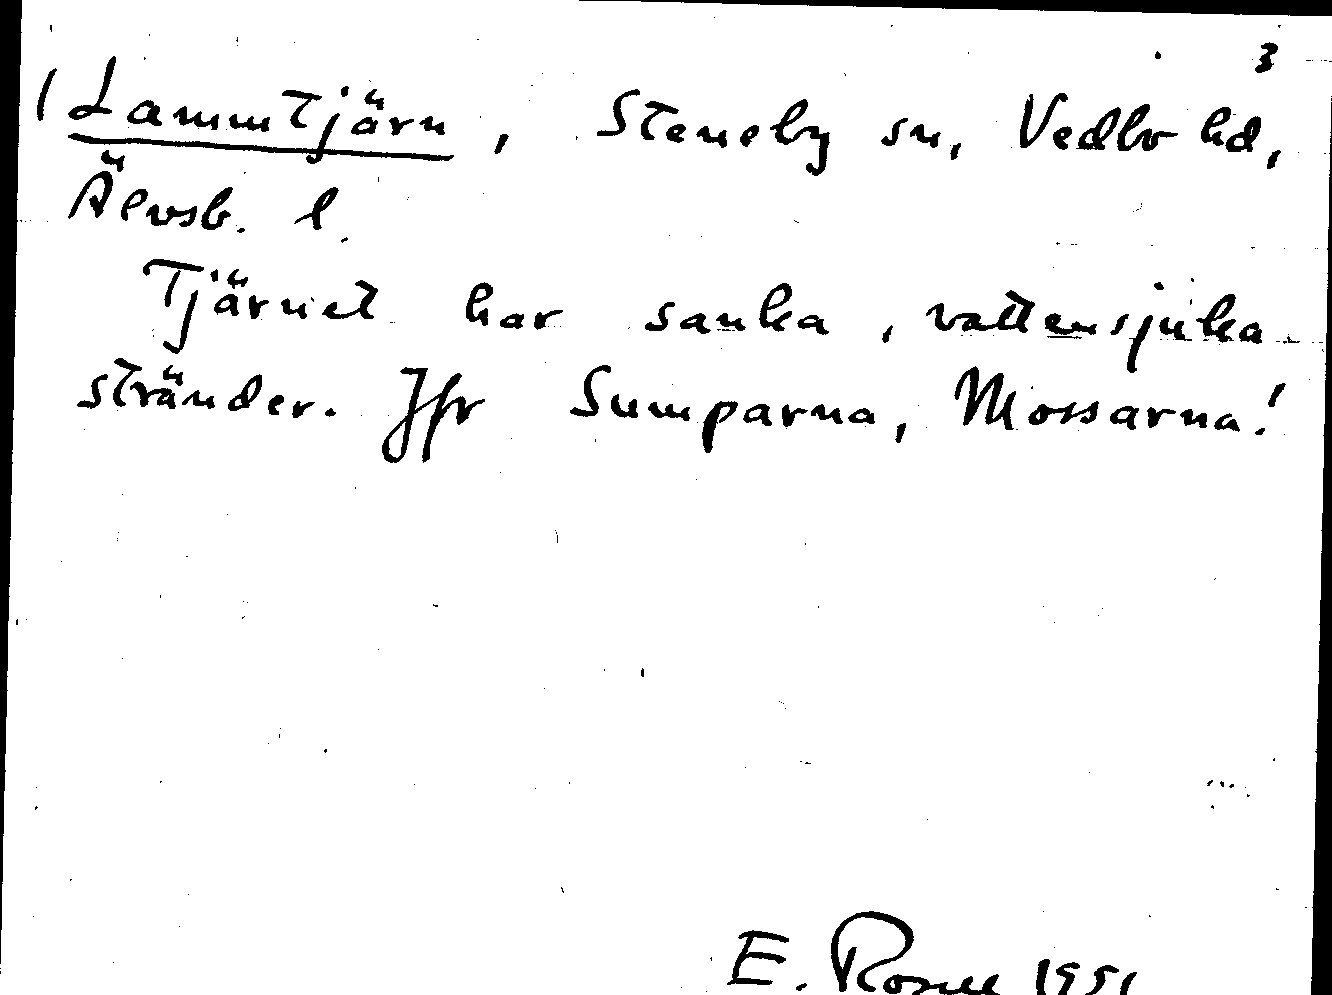 3
(Lammtjärn, Steneby sn, Vedbo hd,
Älvsb. l.
Tjärnet har sanka, vattensjuka
stränder. Jfr Sumparna, Mossarna!
E. Rosell 1951